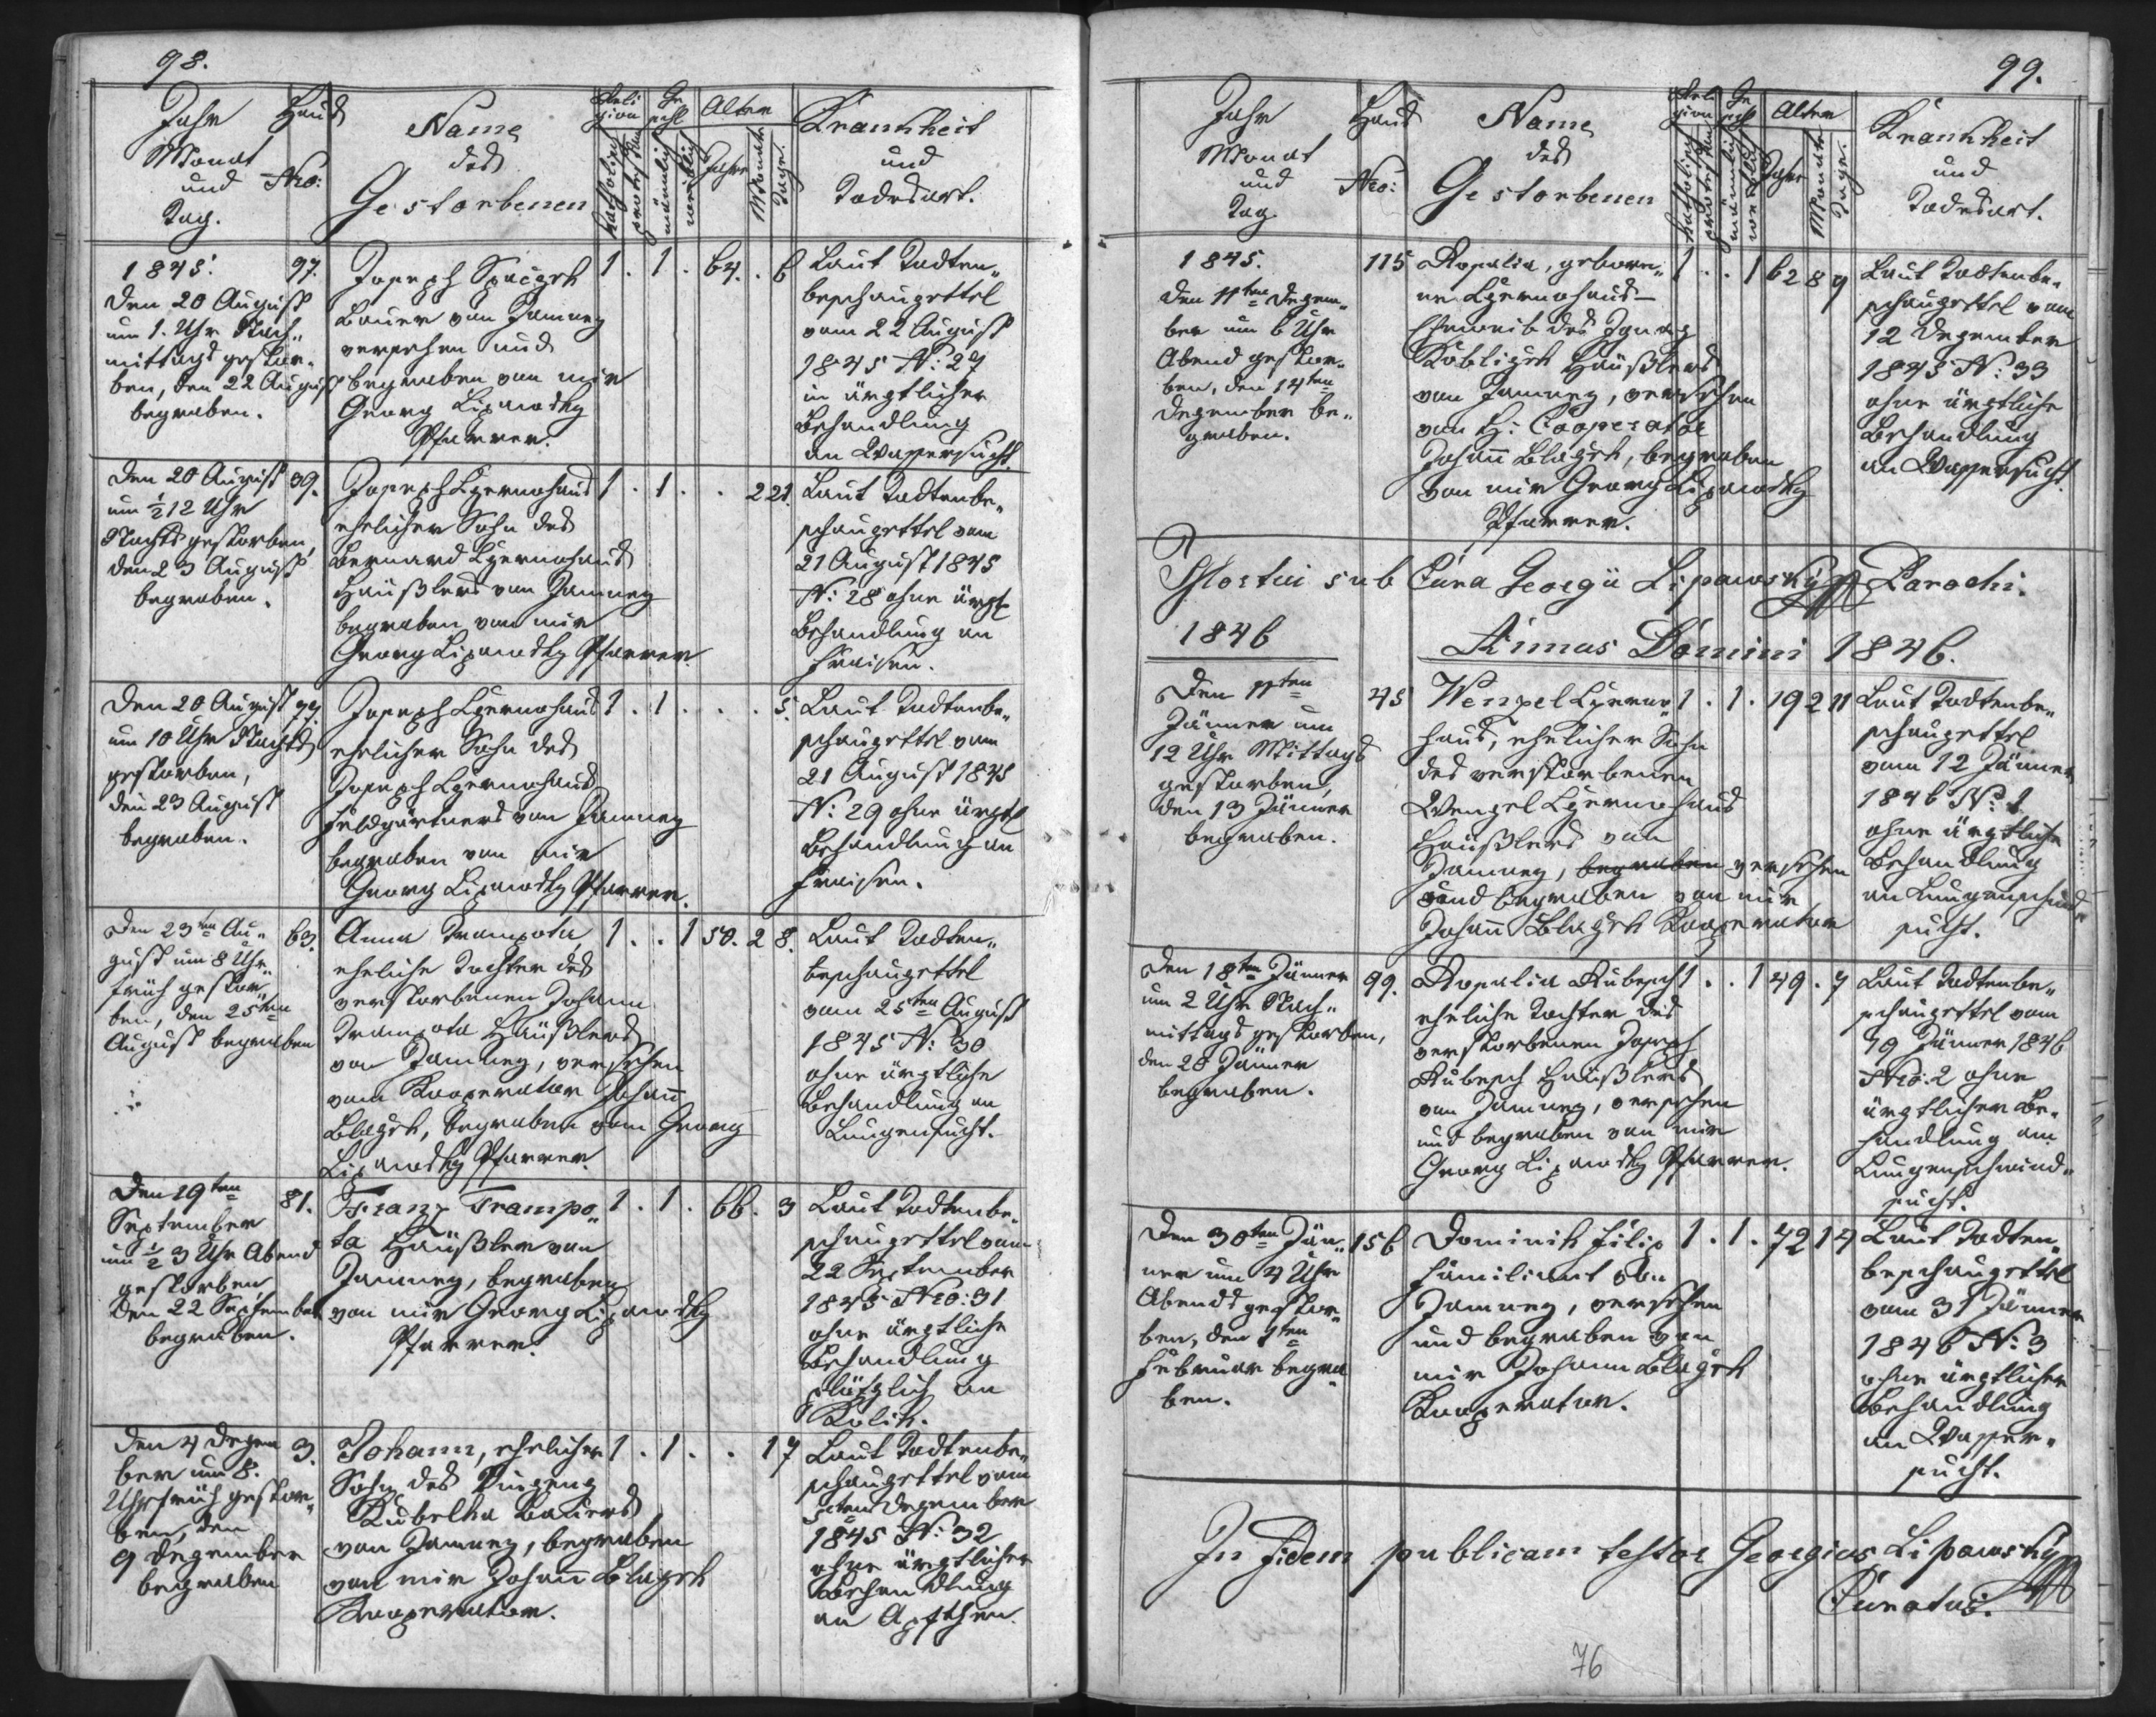 98.
Jahr
Monat
und
Tag.
Haus
Nro:
Name
des
Gestorbenen
Religion
katholisch
protestan
Geschl
männlich
weiblich
Alter
Jahre
Monate
Tage.
Krankheit
und
Todesart.
1845.
den 20 August
um 1. Uhr Nach„
mittags gestor„
ben, den 22 August
begraben.
97.
Joseph Spaček
Bauer von Jamney
versehen und
begraben von mir
Georg Lipawsky
Pfarrer.
1 . 1 . 64 . 6
Laut Todten„
beschauzettel
vom 22 August
1845 N: 27
in ärztlicher
Behandlung
an Wassersucht.
den 20 August
um ½ 12 Uhr
Nachts gestorben,
den 23 August
begraben.
39.
Joseph Czernohaus
ehelicher Sohn des
Bernard Czernohaus
Häußlers von Jamney
begraben von mir
Georg Lipawsky Pfarrer.
1 . 1 . . 2 21.
Laut Todtenbe„
schauzettel vom
21 August 1845
N: 28 ohne ärztl
Behandlung an
Fraisen.
den 20 August
um 10 Uhr Nachts
gestorben,
den 23 August
begraben.
77.
Joseph Czernohaus
ehelicher Sohn des
Joseph Czernohaus
Feldgärtners von Jamney
begraben von mir
Georg Lipawsky Pfarrer.
1 . 1 . . . 5.
Laut Todtenbe„
schauzettel vom
21 August 1845
N: 29 ohne ärztl
Behandlung an
Fraisen.
den 23ten Au„
gust um 8 Uhr
früh gestor„
ben, den 25ten
August begraben
63.
Anna Trampota,
eheliche Tochter des
verstorbenen Johann
Trampota Häußlers
von Jamney, versehen
vom Kooperator Johañ
Blažek, begraben vom Georg
Lipawsky Pfarrer.
1 . . 1 50. 2 8.
Laut Todten„
beschauzettel
vom 25ten August
1845 N: 30
ohne ärztliche
Behandlung an
Lungensucht.
den 19ten
September
um ½ 3 Uhr Abend
gestorben,
den 22 September
begraben.
81.
Franz Trampo„
ta Häußler von
Jamney, begraben
von mir Georg Lipawsky
Pfarrer.
1 . 1 . 66 . 3
Laut Todtenbe„
schauzettel vom
22 September
1845 Nro: 31
ohne ärztliche
Behandlung
plötzlich an
Kolik.
den 4 Dezem
ber um 8.
Uhr früh gestor„
ben, den
9 Dezember
begraben
3.
Johann, ehelicher
Sohn des Vinzenz
Kubelka Bauers
von Jamney, begraben
von mir Johañ Blažek
Kooperator.
1 . 1 . . 1 7
Laut Todtenbe„
schauzettel vom
5ten Dezember
1845 N: 32
ohne ärztlicher
Behandlung
an Apfthen.
99.
Jahr
Monat
und
Tag
Haus
Nro:
Name
des
Gestorbenen
Religion
katholisch
protestan
Geschl
männlich
weiblich
Alter
Jahre
Monate
Tage.
Krankheit
und
Todesart.
1845.
den 11ten Dezem„
ber um 6 Uhr
Abend gestor„
ben, den 14ten
Dezember be„
graben.
115
Rosalia, gebore„
ne Czernohaus
Eheweib des Ignaz
Koblizek Häußlers
von Jamney, versehen
von H: Cooperator
Johañ Blažek, begraben
von mir Georg Lipawsky
Pfarrer.
1 . . 1 62 8 9
Laut Todtenbe„
schauzettel vom
12 Dezember
1845 N: 33
ohne ärztliche
Behandlung
an Wassersucht.
Mortui sub Cura Georgii Lipawsky Parochi.
1846
Annus Domini 1846.
Den 11ten
Jänner um
12 Uhr Mittags
gestorben,
den 13 Jänner
begraben.
45
Wenzel Czerno„
haus, ehelicher Sohn
des verstorbenen
Wenzel Czernohaus
Häußlers von
Jamney, begraben versehen
und begraben von mir
Johañ Blažek Kooperator
1 . 1 . 19 2 11
Laut Todtenbe„
schauzettel
vom 12 Jänner
1846 N: 1.
ohne ärztliche
Behandlung
an Lungenschwind„
sucht.
den 18ten Jänner
um 2 Uhr Nach„
mittags gestorben,
den 20 Jänner
begraben.
99.
Rosalia Kubesch
eheliche Tochter des
verstorbenen Joseph
Kubesch Häußlers
von Jamney, versehen
und begraben von mir
Georg Lipawsky Pfarrer.
1 . . 1 49 . 7
Laut Todtenbe„
schauzettel vom
19 Jänner 1846
Nro: 2 ohne
ärztlicher Be„
handlung an
Lungenschwind„
sucht.
den 30ten Jän„
ner um 4 Uhr
Abends gestor„
ben, den 1ten
Februar begra„
ben.
156
Dominik Filip
Familiant von
Jamney, versehen
und begraben von
mir Johann Blažek
Kooperator.
1 . 1 . 72 1 4
Laut Todten„
beschauzettel
vom 31 Jänner
1846 N: 3
ohne ärztlicher
Behandlung
an Wasser„
sucht.
In Fidem publicam testor Georgius Lipawsky
Curatus.
76